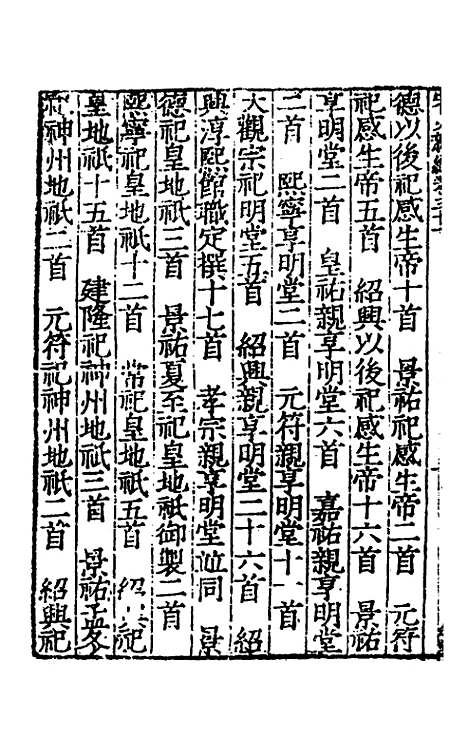 德以後祀感生帝十首　景祐祀感生帝二首　元符
祀感生帝五首　紹興以後祀感生帝十六首　景祐
享明堂二首　皇祐親享明堂六首　嘉祐親享明堂
二首　熙寧享明堂二首　元符親享明堂十一首
大觀宗祀明堂五首　紹興親享明堂二十六首　紹
興淳熙館職定撰十七首　孝宗親享明堂並同　景
德祀皇地祇三首　景祐夏至祀皇地祇御製二首
熙寧祀皇地祇十二首　常祀皇地祇五首　紹　祀
皇地祇十五首　建隆祀神州地祇三首　景祐孟冬
祀神州地祇二首　元符祀神州地祇二首　紹興祀